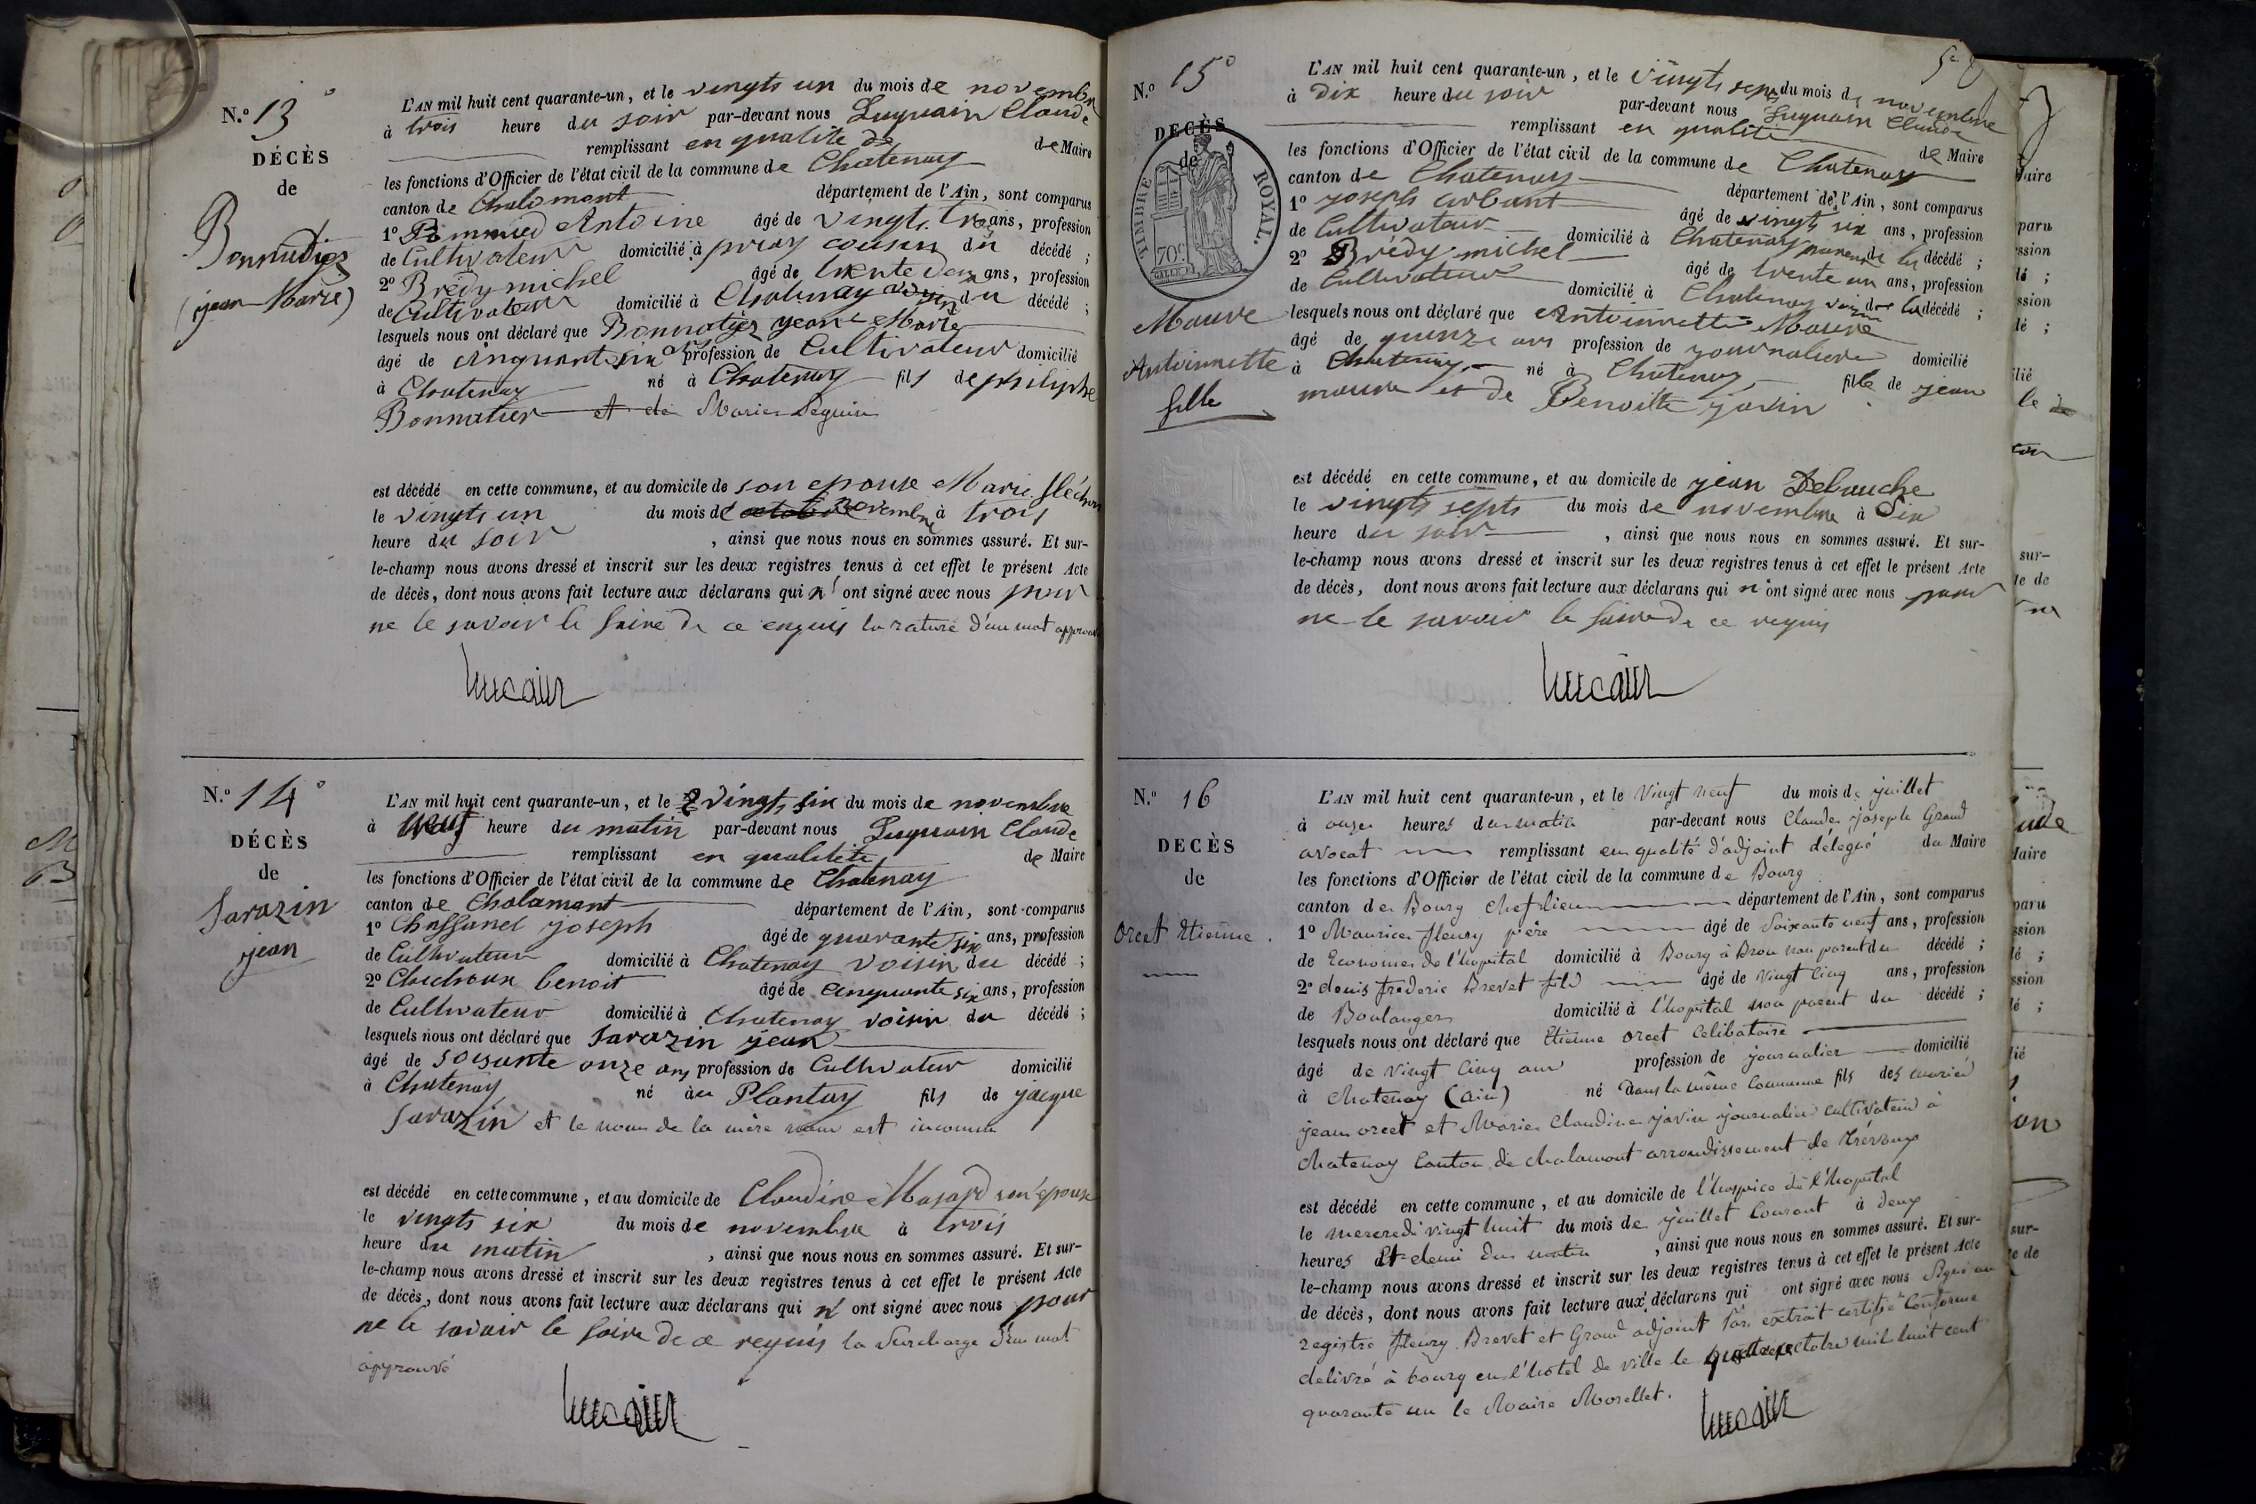 N.° 13°
DÉCÈS
de
Bonnatier
(jean Marie)
L'AN mil huit cent quarante-un, et le vingts un du mois de novembre
à trois heure du soir par-devant nous Luquain Claude
remplissant en qualite de de Maire
les fonctions d'Officier de l'état civil de la commune de Chatenay
canton de Chalamont département de l'Ain, sont comparus
1° Antoine âgé de vingts trois ans, profession
de Cultivateur domicilié à cousin du décédé ;
2° Brédy michel âgé de trente deux ans, profession
de Cultivateur domicilié à Chatenay voisin du décédé ;
lesquels nous ont déclaré que Bonnatier jean Marie
âgé de cinquant six ans profession de Cultivateur domicilié
à Chatenay né à Chatenay fils de philiphe
Bonnatier et de Marie Seguin
est décédé en cette commune, et au domicile de son epouse Marie
le vingts un du mois de octobre novembre à trois
heure du soir , ainsi que nous nous en sommes assuré. Et sur-
le-champ nous avons dressé et inscrit sur les deux registres tenus à cet effet le présent Acte
de décès, dont nous avons fait lecture aux déclarans qui n' ont signé avec nous pour
ne le savoir le faire de ce enquis la rature d'un mot approuvé
Lucain
N.° 14°
DÉCÈS
de
Sarazin
jean
L'AN mil huit cent quarante-un, et le vingts six du mois de novembre
à neuf heure du matin par-devant nous Luquain Claude
remplissant en qualitéte de Maire
les fonctions d'Officier de l'état civil de la commune de Chatenay
canton de Chalamant département de l'Ain, sont comparus
1° Chassanel joseph âgé de quarante six ans, profession
de Cultivateur domicilié à Chatenay voisin du décédé ;
2° benoit âgé de cinquante six ans, profession
de Cultivateur domicilié à Chatenay voisin du décédé ;
lesquels nous ont déclaré que Sarazin jean
âgé de soisante onze ans profession de Cultivateur domicilié
à Chatenay né au Plantay fils de jacque
Sarazin et le nom de la mère nous est inconnu
est décédé en cette commune, et au domicile de Claudine son epouse
le vingts six du mois de novembre à trois
heure du matin , ainsi que nous nous en sommes assuré. Et sur-
le-champ nous avons dressé et inscrit sur les deux registres tenus à cet effet le présent Acte
de décès, dont nous avons fait lecture aux déclarans qui n' ont signé avec nous pour
ne le savoir le faire de ce requis la surcharge d'un mot
approuvé
Lucain
N.° 15°
DECÈS
de
TIMBRE ROYAL.
70c.
Mauve
Antoinnette
fille
L'AN mil huit cent quarante-un, et le vingts septs du mois de novembre
à dix heure du soir par-devant nous Luquain Claude
remplissant en qualité de Maire
les fonctions d'Officier de l'état civil de la commune de Chatenay
canton de Chatenay département de l'Ain, sont comparus
1° joseph âgé de vingts six ans, profession
de Cultivateur domicilié à Chatenay parent de la décédé ;
2° Brédy michel âgé de trente un ans, profession
de Cultivateur domicilié à Chatenay voisin de la décédé ;
lesquels nous ont déclaré que Antoinnette Mauve
âgé de quinze ans profession de journaliere domicilié
à Chatenay né à Chatenay fille de jean
mauve et de Benoitte javin
est décédé en cette commune, et au domicile de jean Debauche
le vingts septs du mois de novembre à Six
heure du soir , ainsi que nous nous en sommes assuré. Et sur-
le-champ nous avons dressé et inscrit sur les deux registres tenus à cet effet le présent Acte
de décès, dont nous avons fait lecture aux déclarans qui n'ont signé avec nous pour
ne le savoir le faire de ce requis
Lucain
N.° 16
DECÈS
de
Orcet Etienne.
L'AN mil huit cent quarante-un, et le Vingt neuf du mois de juillet
à onze heures du matin par-devant nous Claude joseph Grand
avocat remplissant en qualité d'adjoint délegué du Maire
les fonctions d'Officier de l'état civil de la commune de Bourg
canton de Bourg chef lieu département de l'Ain, sont comparus
1° Maurice fleury père âgé de Soixante neuf ans, profession
de Econome de l'hopital domicilié à Bourg à Brou non parent du décédé ;
2° denis frederic Brevet fils âgé de vingt cinq ans, profession
de Boulanger domicilié à l'hopital non parent du décédé ;
lesquels nous ont déclaré que Etienne orcet Celibataire
âgé de vingt cinq ans profession de journalier domicilié
à Chatenay (ain) né dans la même Commune fils des mariés
jean orcet et Marie Claudine javin journalier cultivateur à
Chatenay Canton de chalamont arrondissement de Trévoux
est décédé en cette commune, et au domicile de l'hospice de l'hopital
le mercredi vingt huit du mois de juillet courant à deux
heures et demi du matin , ainsi que nous nous en sommes assuré. Et sur-
le-champ nous avons dressé et inscrit sur les deux registres tenus à cet effet le présent Acte
de décès, dont nous avons fait lecture aux déclarans qui ont signé avec nous Signé au
registre fleury Brevet et Grand adjoint Par extrait certifié Conforme
delivré à bourg en l'hotel de ville le octobre mil huit cent
quarante un le Maire Morellet.
Lucain